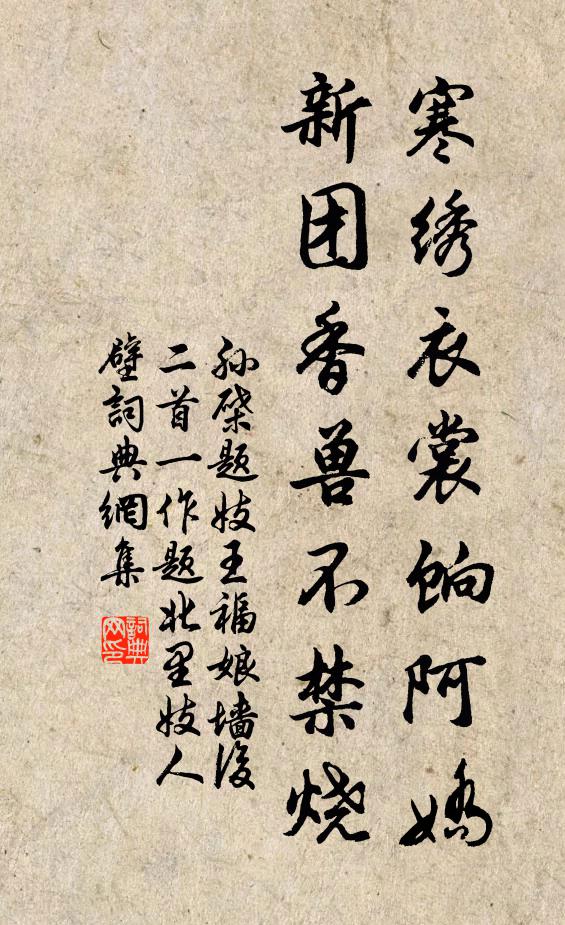 寒绣衣裳饷阿娇
新团香兽不禁烧
孙棨题妓王福娘墙後
二首一作题北里妓人
壁詞典網集
詞典
网印